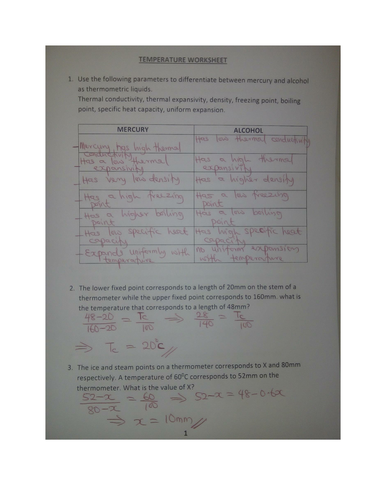 TEMPERATURE WORKSHEET
1. Use the following parameters to differentiate between mercury and alcohol
as thermometric liquids.
Thermal conductivity, thermal expansivity, density, freezing point, boiling
point, specific heat capacity, uniform expansion
MERCURY ALCOHOL
- Mercury has high thermal conductivity Has low thermal conductivity
- Has a low thermal expansivity Has a high thermal expansivity
- Has very low density Has a higher density
- Has a high freezing point Has a low freezing point
- Has a higher boiling point Has a low boiling point
- Has low specific heat capacity Has high specific heat capacity
- Expands uniformly with temperature uniform expansion with temperature
2. The lower fixed point corresponds to a length of 20mm on the stem of a
thermometer while the upper fixed point corresponds to 160mm. what is
the temperature that corresponds to a length of 48mm?
48-20/160-20 = Tc/100 ⇒ 28/140 = Tc/100
⇒ Tc = 20°C
3. The ice and steam points on a thermometer corresponds to X and 80mm
respectively. A temperature of 60°C corresponds to 52mm on the
thermometer. What is the value of X?
52-x/80-x = 60/100 ⇒ 52-x = 48-0.6x
⇒ x = 10mm
1